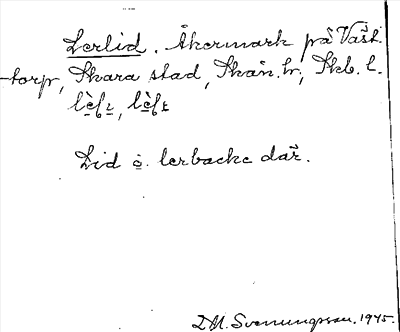 Lerlid. Åkermark på Väst-
torp, Skara stad, Skån. hr; Skb. l.
Lid o. lerbacke där.
D.M. Svenungsson. 1945.